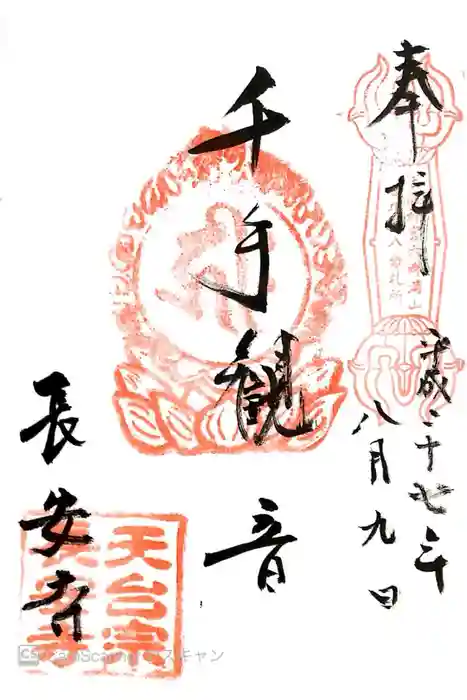 奉拝
平成二十七年
八月九日
千手観音
長安寺
天台宗
長安寺
CS CamScanner でスキャン